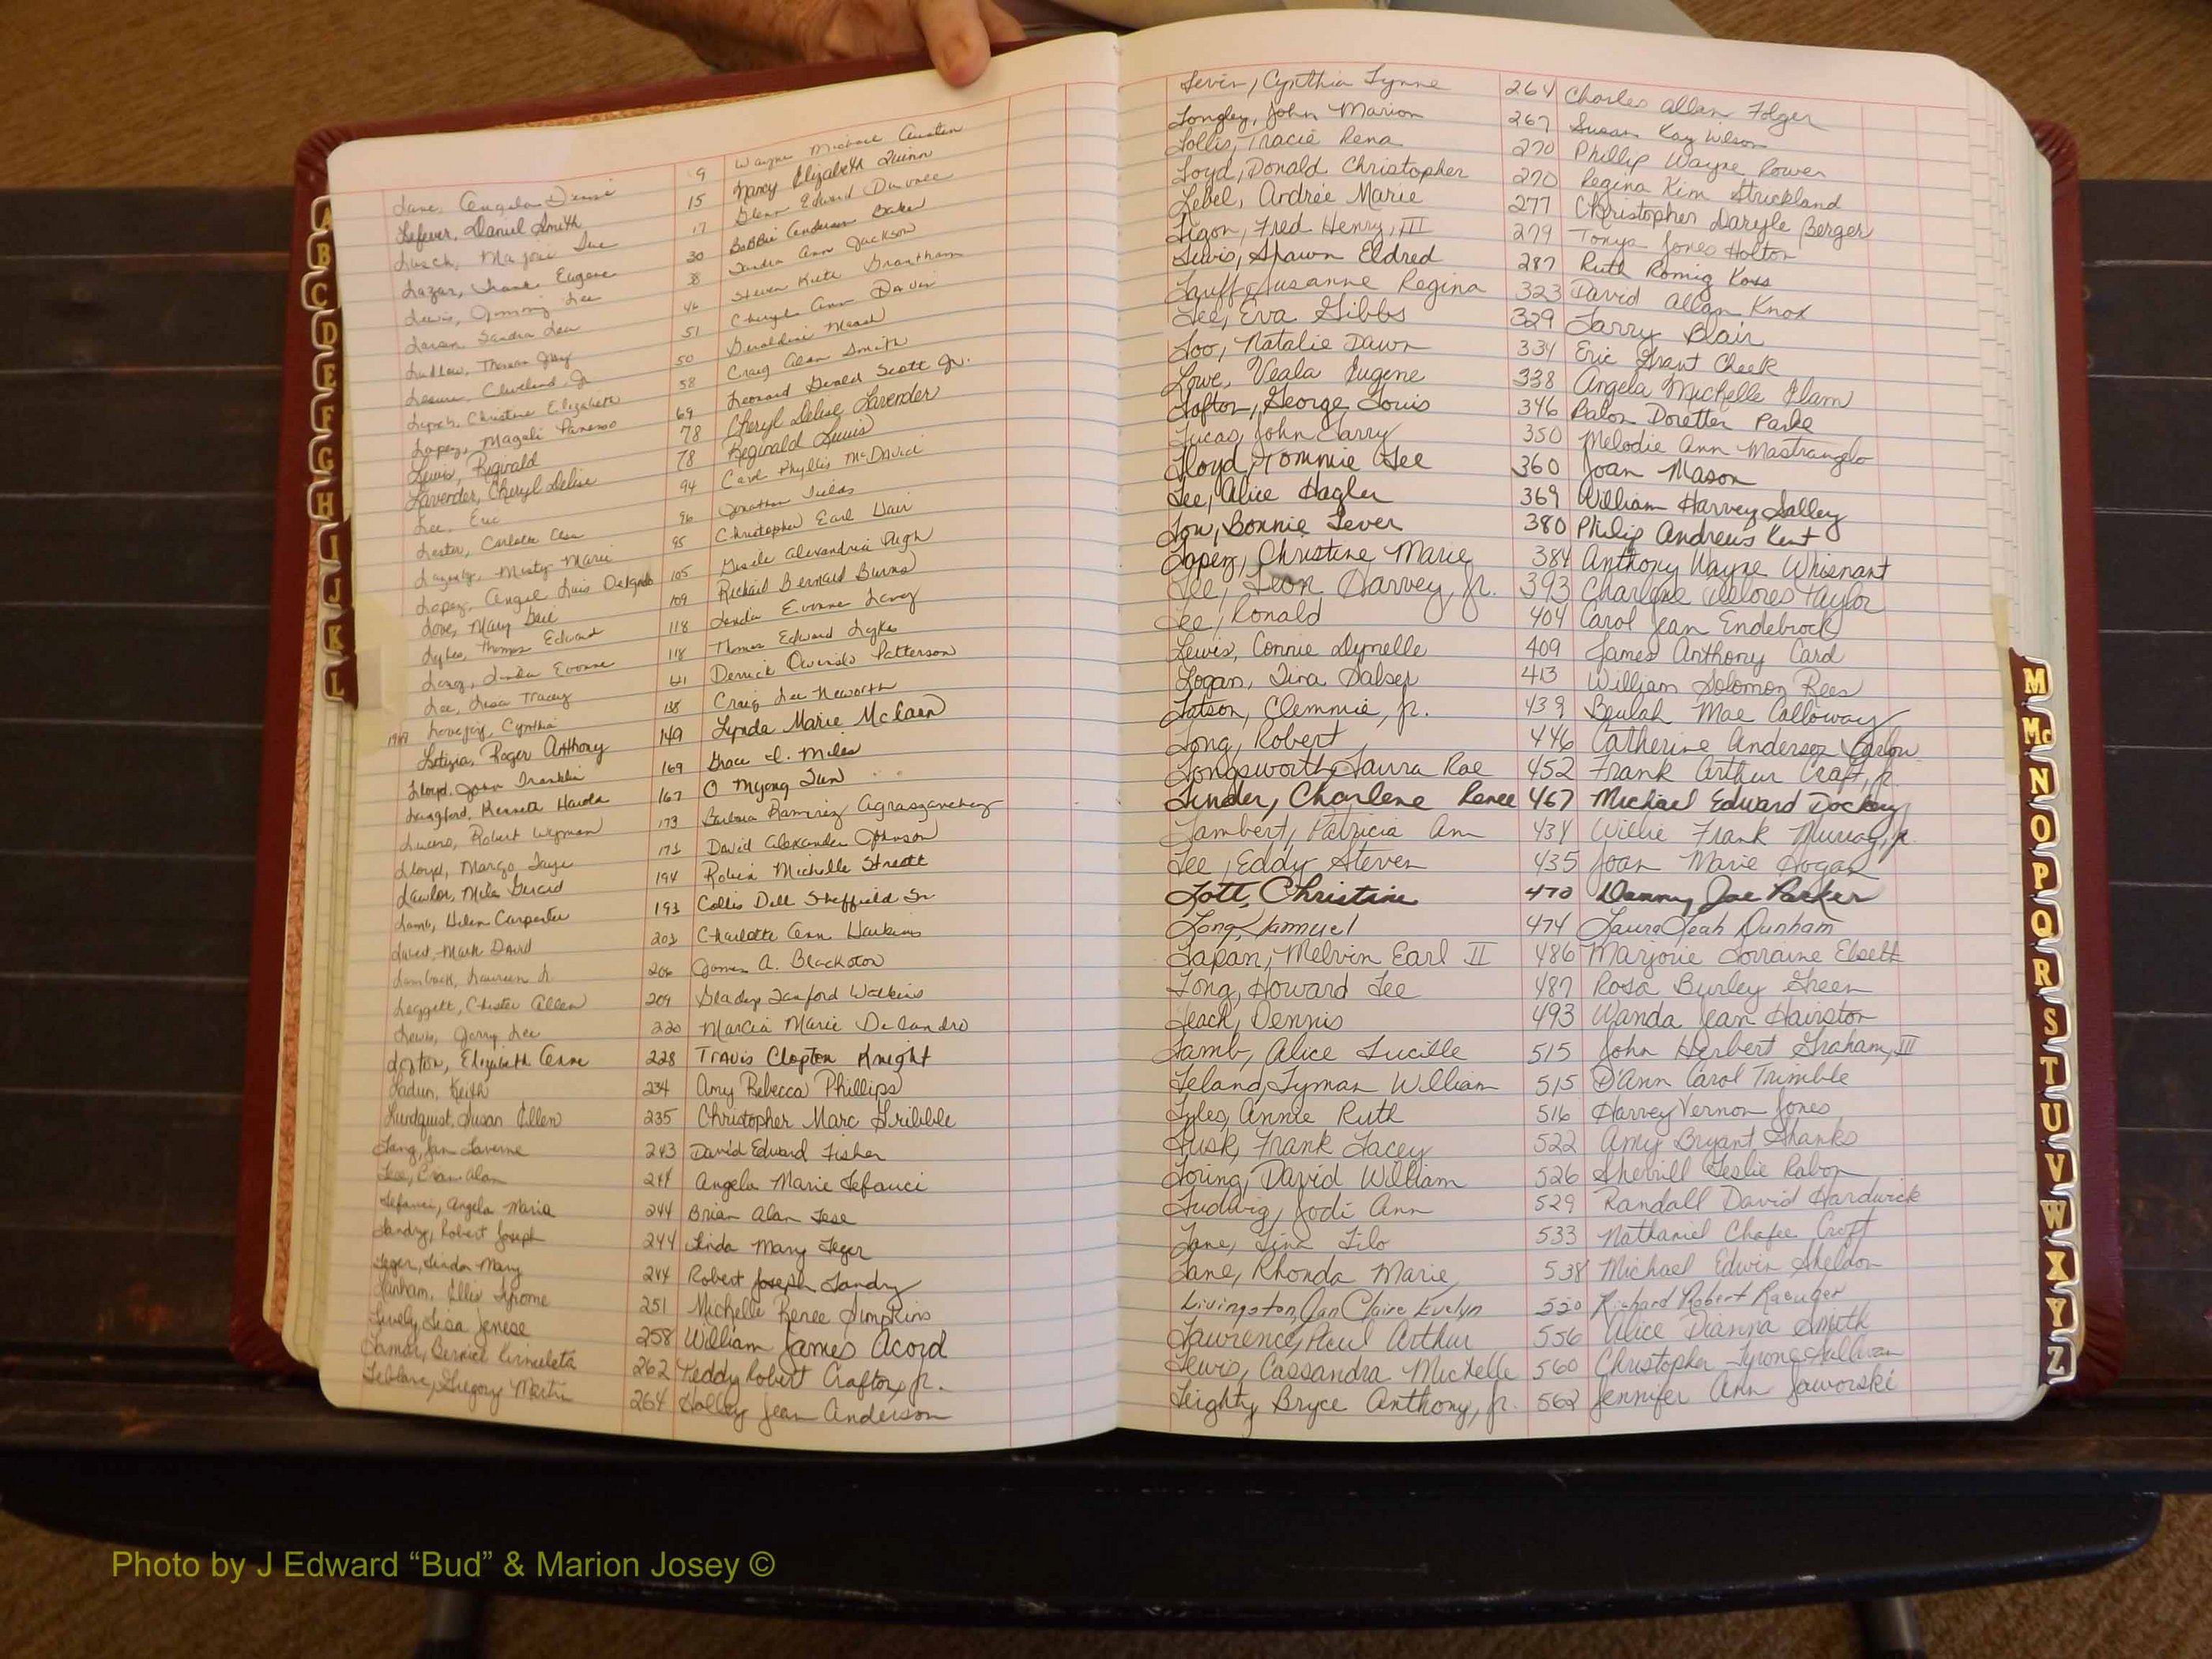 Lane, Angela Denise 9 Wayne Michael Austin
Lefever, Daniel Smith 15 Nancy Elizabeth Quinn
Marjorie Sue 17 Glenn Edward
Lazar, Frank Eugene 30 Bobbie Anderson Baker
Lewis, Jimmy Lee 38 Sandra Ann Jackson
Sandra Lea 46 Steven Keith Grantham
Ludlow, Thomas Jay 51 Cheryl Ann Davis
Lesure, Cleveland, Jr. 50 Geraldine
Lynch, Christine Elizabeth 58 Craig Alan Smith
Lopez, Magali 69 Leonard Gerald Scott Jr.
Lewis, Reginald 78 Cheryl Delise Lavender
Lavender, Cheryl Delise 78 Reginald Lewis
Lee, Eric 94 Carol Phyllis McDavid
Lester, Carlotta Ann 96 Jonathan Fields
Misty Marie 95 Christopher Earl Hair
Lopez, Angel Luis Delgado 105 Gisele Alexandria Pugh
Love, Mary Gail 109 Richard Bernard Burns
Lykes, Thomas Edward 118 Linda Evonne
Linda Evonne 118 Thomas Edward Lykes
Lee, Lisa Tracey 121 Derrick Patterson
Lovejoy, Cynthia 138 Craig Lee Neworth
Letizia, Roger Anthony 149 Lynda Marie McLain
Lloyd, John Franklin 169 Grace I. Miles
Langford, Kenneth Harold 167 O Myong Sun
Lucero, Robert Wyman 173 Barbara Ramirez
Lloyd, Margo Faye 173 David Alexander Johnson
Lawlor, Gerard 194 Robin Michelle Streett
Lamb, Helen Carpenter 193 Collis Dell Sheffield Sr.
Mark David 203 Charlotte Ann Harkins
Lamback, Laureen 206 James A. Blackston
Leggett, Chester Allen 209 Gladys Sanford Watkins
Lewis, Jerry Lee 220 Marcia Marie
Elizabeth Anne 228 Travis Clopton Knight
Ladun, Keith 234 Amy Rebecca Phillips
Lundquist, Susan Ellen 235 Christopher Marc Gribble
Lang, Jan Laverne 243 David Edward Fisher
Lese, Brian Alan 244 Angela Marie Lefauci
Lefauci, Angela Maria 244 Brian Alan Lese
Landry, Robert Joseph 244 Linda Mary Leger
Leger, Linda Mary 244 Robert Joseph Landry
Lanham, Ellis Tyrome 251 Michelle Renee Simpkins
Lively, Lisa Jenese 258 William James Acord
Lamar, Bernice 262 Teddy Robert Crafton, Jr.
Leblanc, Gregory Martin 264 Holley Jean Anderson
Levin, Cynthia Lynne 264 Charles Allan Folger
Longley, John Marion 267 Susan Kay Wilson
Lollis, Tracie Rena 270 Phillip Wayne Power
Loyd, Donald Christopher 270 Regina Kim Strickland
Lebel, Andrée Marie 277 Christopher Daryle Berger
Ligon, Fred Henry, III 279 Tonya Jones Holton
Lewis, Shawn Eldred 287 Ruth Romig Koss
Lauff, Susanne Regina 323 David Allan Knox
Lee, Eva Gibbs 329 Larry Blair
Loo, Natalie Dawn 334 Eric Grant Cheek
Lowe, Veala Eugene 338 Angela Michelle Elam
Lofton, George Louis 346 Doretter Parke
Lucas, John Larry 350 Melodie Ann Mastrangelo
Lloyd, Tommie Lee 360 Joan Mason
Lee, Alice Hagler 369 William Harvey Salley
Low, Bonnie Lever 380 Philip Andrews Kent
Lopez, Christine Marie 384 Anthony Wayne Whisnant
Lee, Leon Harvey, Jr. 393 Charlene Delores Taylor
Lee, Ronald 404 Carol Jean Endebrock
Lewis, Connie Dynelle 409 James Anthony Card
Logan, Tina Salser 413 William Solomon Rees
Latson, Clemmie, Jr. 439 Beulah Mae Calloway
Long, Robert 446 Catherine Anderson
Longsworth, Laura Rae 452 Frank Arthur Craft, Jr.
Linder, Charlene Renee 467 Michael Edward Dockey
Lambert, Patricia Ann 434 Willie Frank Murray, Jr.
Lee, Eddy Steven 435 Joan Marie Hogan
Lott, Christine 470 Danny Joe Parker
Long, Samuel 474 Laura Leah Dunham
Lapan, Melvin Earl II 486 Marjorie Lorraine Elseth
Long, Howard Lee 487 Rosa Burley Green
Leach, Dennis 493 Wanda Jean Hairston
Lamb, Alice Lucille 515 John Herbert Graham, III
Leland, Lyman William 515 D'Ann Carol Trimble
Lyles, Annie Ruth 516 Harvey Vernon Jones
Lusk, Frank Lacey 522 Amy Bryant Shanks
Loring, David William 526 Sherrill Leslie Rabon
Ludwig, Jodi Ann 529 Randall David Hardwick
Lane, Tina Lilo 533 Nathaniel Chafee Croft
Lane, Rhonda Marie 538 Michael Edwin Sheldon
Livingston, Jan Claire Evelyn 550 Richard Robert
Lawrence, Paul Arthur 556 Alice Dianna Smith
Lewis, Cassandra Michelle 560 Christopher Tyrone Sullivan
Leighty, Bryce Anthony, Jr. 562 Jennifer Ann Jaworski
A
B
C
D
E
F
G
H
I
J
K
L
M
Mc
N
O
P
Q
R
S
T
U
V
W
X
Y
Z
Photo by J Edward “Bud” & Marion Josey ©